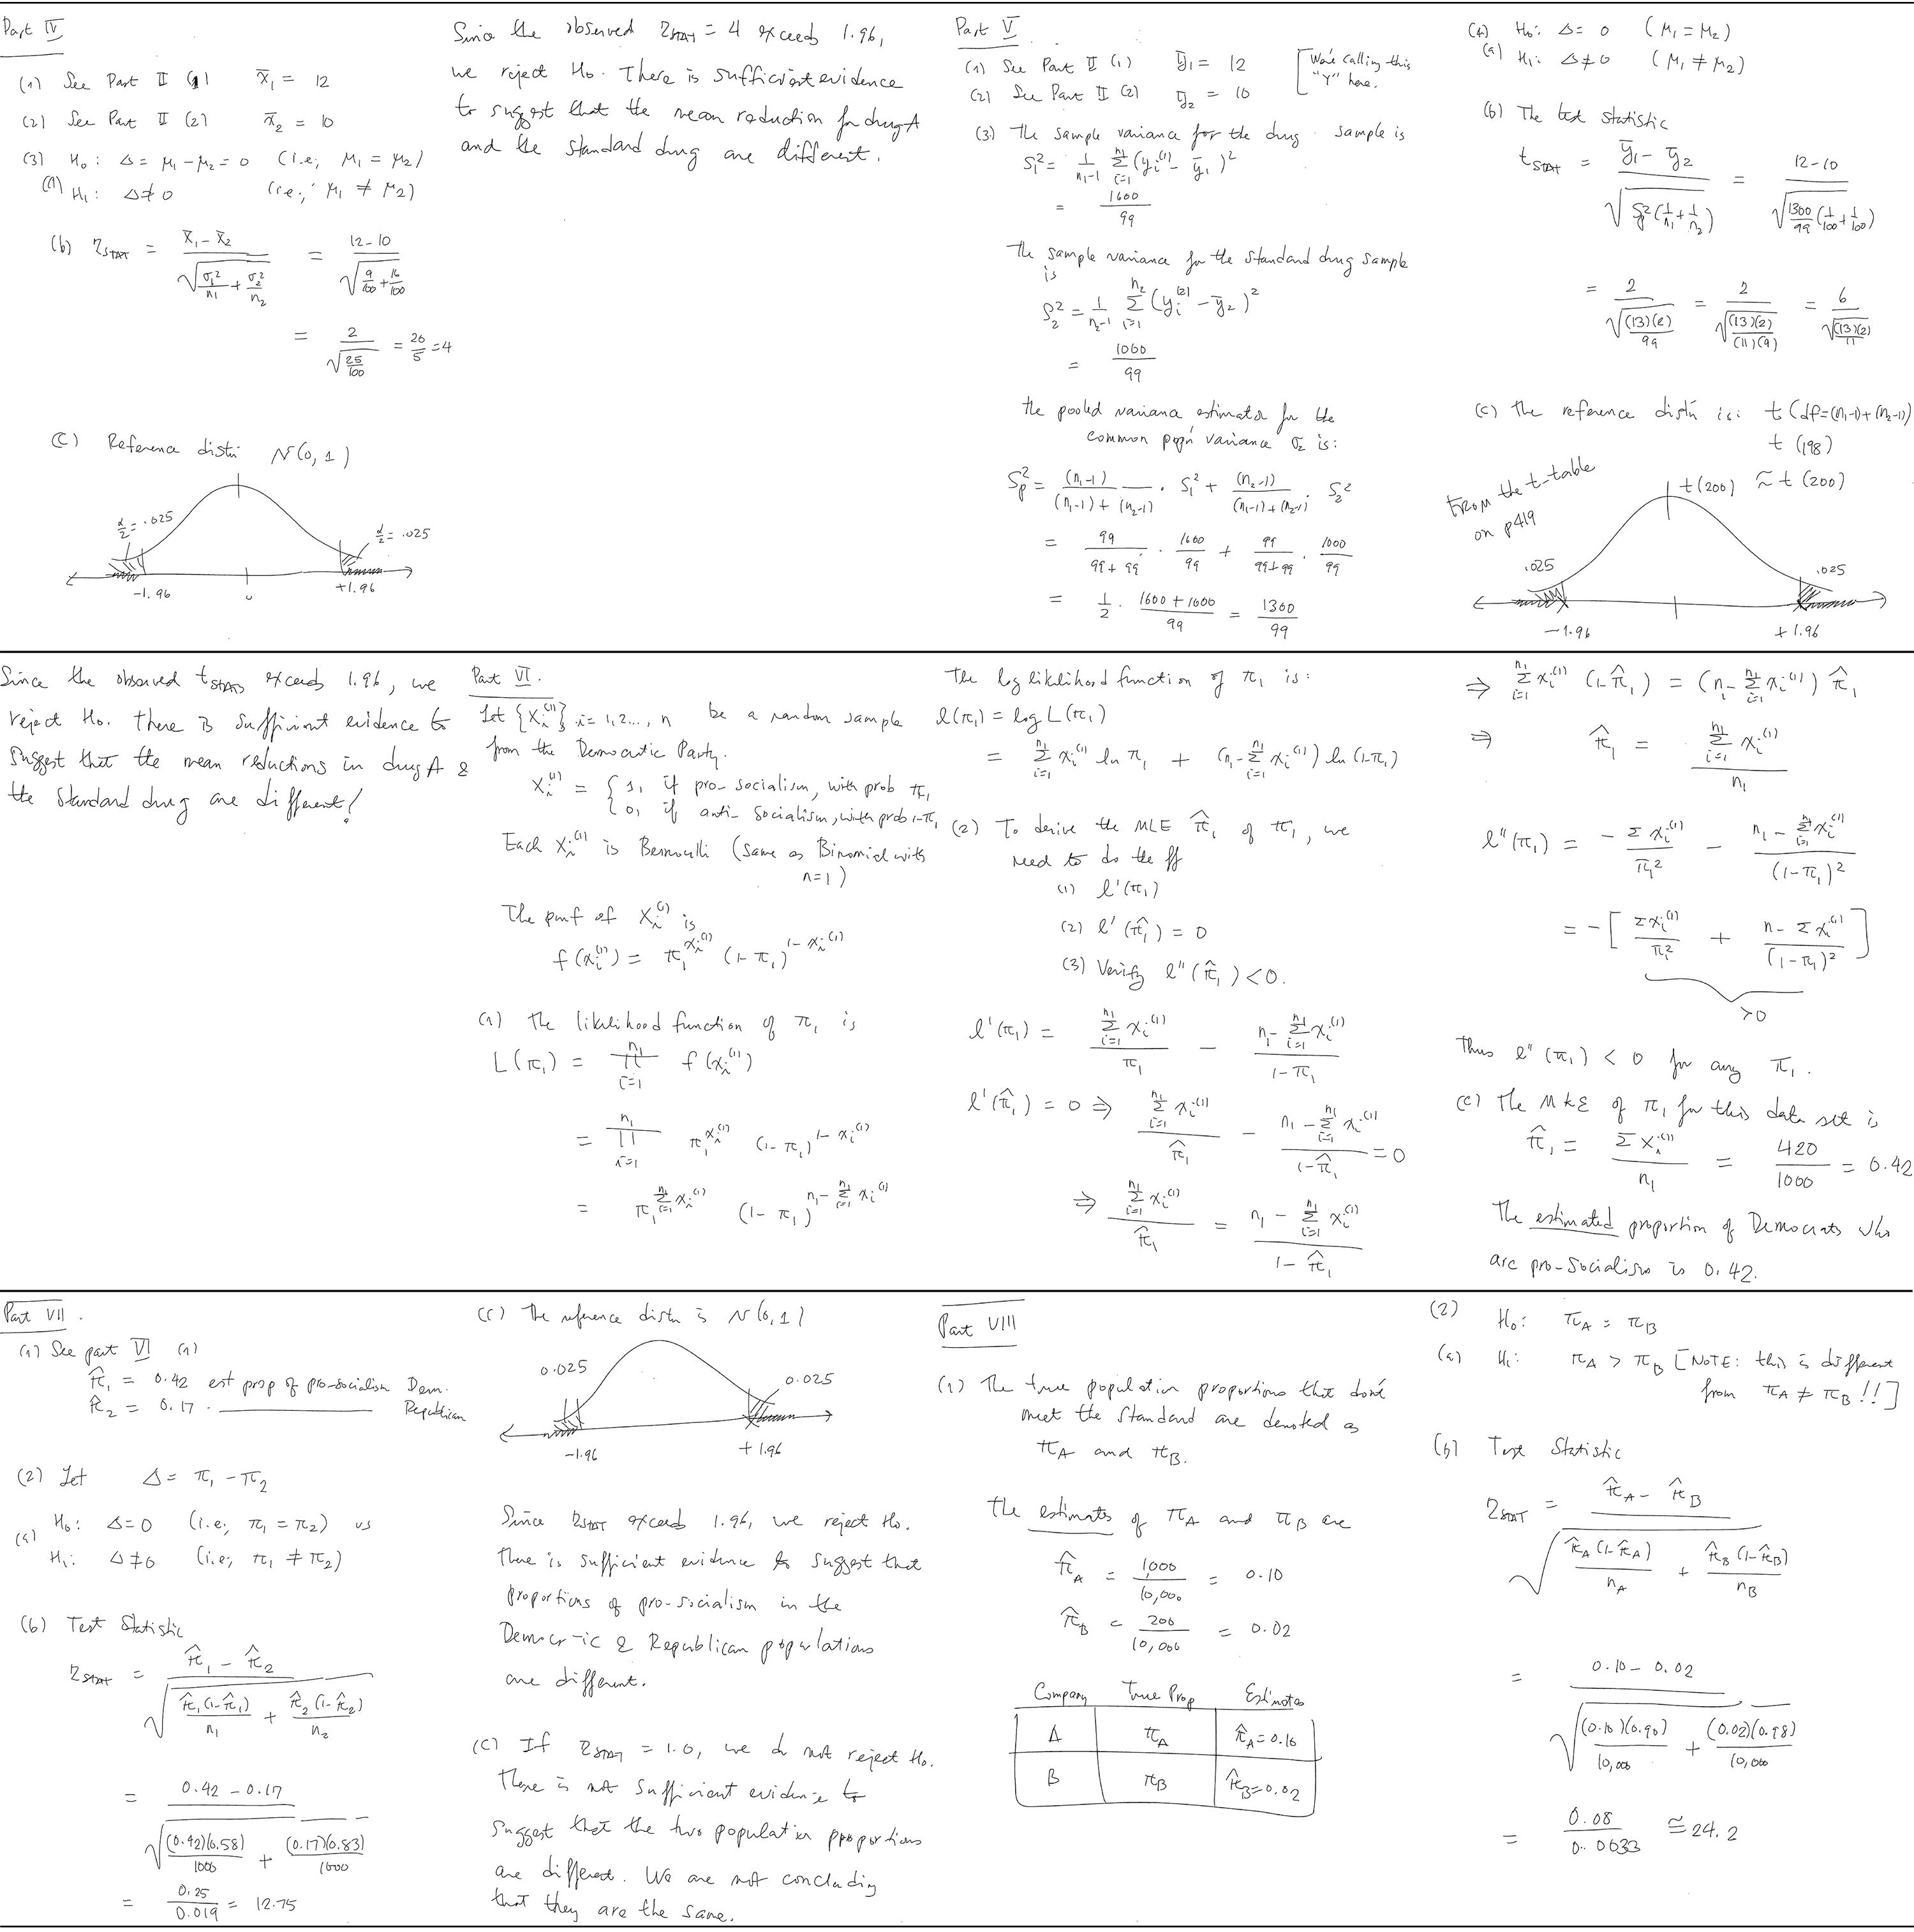 Part IV
(1) See Part II (1) x̄₁ = 12
(2) See Part II (2) x̄₂ = 10
(3) H₀: Δ = μ₁ - μ₂ = 0 (i.e., μ₁ = μ₂)
(a) H₁: Δ ≠ 0 (i.e., μ₁ ≠ μ₂)
(b) Z_STAT = (x̄₁ - x̄₂) / √(σ₁²/n₁ + σ₂²/n₂) = (12-10) / √(9/100 + 16/100)
= 2 / √(25/100) = 20/5 = 4
(C) Reference distn N(0,1)
α/2 = .025
α/2 = .025
-1.96 0 +1.96
Since the observed Z_STAT = 4 exceeds 1.96,
we reject H₀. There is sufficient evidence
to suggest that the mean reduction for drug A
and the standard drug are different.
Part V
(1) See Part II (1) ȳ₁ = 12 [We're calling this
(2) See Part II (2) ȳ₂ = 10 "Y" here.
(3) The sample variance for the drug sample is
S₁² = 1/(n₁-1) Σ_{i=1}^{n₁} (y_i^{(1)} - ȳ₁)²
= 1600/99
The sample variance for the standard drug sample
is
S₂² = 1/(n₂-1) Σ_{i=1}^{n₂} (y_i^{(2)} - ȳ₂)²
= 1000/99
The pooled variance estimator for the
common pop'n variance σ₂ is:
S_p² = (n₁-1)/((n₁-1)+(n₂-1)) · S₁² + (n₂-1)/((n₁-1)+(n₂-1)) · S₂²
= 99/(99+99) · 1600/99 + 99/(99+99) · 1000/99
= 1/2 · (1600+1000)/99 = 1300/99
(4) H₀: Δ = 0 (μ₁ = μ₂)
(a) H₁: Δ ≠ 0 (μ₁ ≠ μ₂)
(b) The test statistic
t_STAT = (ȳ₁ - ȳ₂) / √(S_p²(1/n₁ + 1/n₂)) = (12-10) / √(1300/99 (1/100 + 1/100))
= 2 / √((13)(2)/99) = 2 / √((13)(2)/((11)(9))) = 6 / √((13)(2)/11)
(c) The reference distn is: t (df=(n₁-1)+(n₂-1))
t (198)
≈ t (200)
From the t-table
on p419
t(200)
.025 .025
-1.96 +1.96
Since the observed t_STAT exceeds 1.96, we
reject H₀. There is sufficient evidence to
suggest that the mean reductions in drug A &
the standard drug are different!
Part VI.
Let {X_i^{(1)}} i = 1,2..., n be a random sample
from the Democratic Party.
X_i^{(1)} = { 1, if pro-socialism, with prob π₁
0, if anti-socialism, with prob 1-π₁
Each X_i^{(1)} is Bernoulli (same as Binomial with
n=1)
The pmf of X_i^{(1)} is
f(x_i^{(1)}) = π₁^{x_i^{(1)}} (1-π₁)^{1-x_i^{(1)}}
(1) The likelihood function of π₁ is
L(π₁) = Π_{i=1}^{n₁} f(x_i^{(1)})
= Π_{i=1}^{n₁} π₁^{x_i^{(1)}} (1-π₁)^{1-x_i^{(1)}}
= π₁^{Σ_{i=1}^{n₁} x_i^{(1)}} (1-π₁)^{n₁-Σ_{i=1}^{n₁} x_i^{(1)}}
The log likelihood function of π₁ is:
l(π₁) = log L(π₁)
= Σ_{i=1}^{n₁} x_i^{(1)} ln π₁ + (n₁-Σ_{i=1}^{n₁} x_i^{(1)}) ln (1-π₁)
(2) To derive the MLE π̂₁ of π₁, we
need to do the ff
(1) l'(π₁)
(2) l'(π̂₁) = 0
(3) Verify l''(π̂₁) < 0.
l'(π₁) = Σ_{i=1}^{n₁} x_i^{(1)} / π₁ - (n₁-Σ_{i=1}^{n₁} x_i^{(1)}) / (1-π₁)
l'(π̂₁) = 0 ⇒ Σ_{i=1}^{n₁} x_i^{(1)} / π̂₁ - (n₁-Σ_{i=1}^{n₁} x_i^{(1)}) / (1-π̂₁) = 0
⇒ Σ_{i=1}^{n₁} x_i^{(1)} / π̂₁ = (n₁ - Σ_{i=1}^{n₁} x_i^{(1)}) / (1-π̂₁)
⇒ Σ_{i=1}^{n₁} x_i^{(1)} (1-π̂₁) = (n₁-Σ_{i=1}^{n₁} x_i^{(1)}) π̂₁
⇒ π̂₁ = Σ_{i=1}^{n₁} x_i^{(1)} / n₁
l''(π₁) = - Σ x_i^{(1)} / π₁² - (n₁-Σ_{i=1}^{n₁} x_i^{(1)}) / (1-π₁)²
= -[ Σ x_i^{(1)} / π₁² + (n-Σ x_i^{(1)}) / (1-π₁)² ]
>0
Thus l''(π₁) < 0 for any π₁.
(c) The MLE of π₁ for this data set is
π̂₁ = Σ X_i^{(1)} / n₁ = 420/1000 = 0.42
The estimated proportion of Democrats who
are pro-socialism is 0.42.
Part VII.
(1) See part VI (1)
π̂₁ = 0.42 est prop of pro-socialism Dem.
π̂₂ = 0.17. Republican
(2) Let Δ = π₁ - π₂
(a) H₀: Δ=0 (i.e., π₁ = π₂) vs
H₁: Δ≠0 (i.e., π₁ ≠ π₂)
(b) Test Statistic
Z_STAT = (π̂₁ - π̂₂) / √(π̂₁(1-π̂₁)/n₁ + π̂₂(1-π̂₂)/n₂)
= (0.42 - 0.17) / √((0.42)(0.58)/1000 + (0.17)(0.83)/1000)
= 0.25/0.019 = 12.75
(c) The reference distn is N(0,1)
0.025 0.025
-1.96 +1.96
Since Z_STAT exceed 1.96, we reject H₀.
There is sufficient evidence to suggest that
proportions of pro-socialism in the
Democratic & Republican populations
are different.
(c) If Z_STAT = 1.0, we do not reject H₀.
There is not sufficient evidence to
suggest that the two population proportions
are different. We are not concluding
that they are the same.
Part VIII
(1) The true population proportions that don't
meet the standard are denoted as
π_A and π_B.
The estimates of π_A and π_B are
π̂_A = 1,000/10,000 = 0.10
π̂_B = 200/10,000 = 0.02
Company True Prop Estimates
A π_A π̂_A=0.10
B π_B π̂_B=0.02
(2) H₀: π_A = π_B
(a) H₁: π_A > π_B [NOTE: this is different
from π_A ≠ π_B!!]
(b) Test Statistic
Z_STAT = (π̂_A - π̂_B) / √(π̂_A(1-π̂_A)/n_A + π̂_B(1-π̂_B)/n_B)
= (0.10 - 0.02) / √((0.10)(0.90)/10,000 + (0.02)(0.98)/10,000)
= 0.08/0.0033 ≅ 24.2